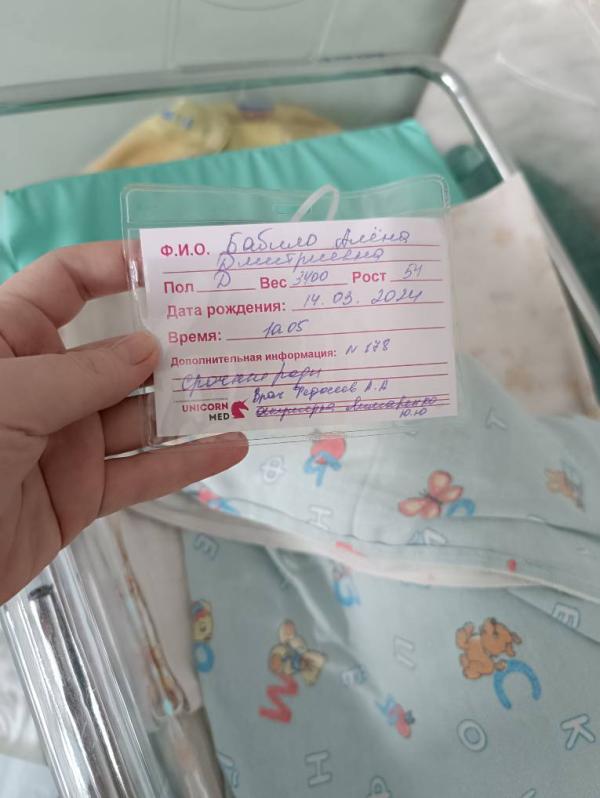 Ф.И.О. Бабило Алёна
Дмитриевна
Пол Д Вес 3400 Рост 54
Дата рождения: 14.03.2024
Время: 10 05
Дополнительная информация: N 178
срочные роды
UNICORN Врач Федосеев А.А
MED акушерка
Ю.Ю
М
С
К
О